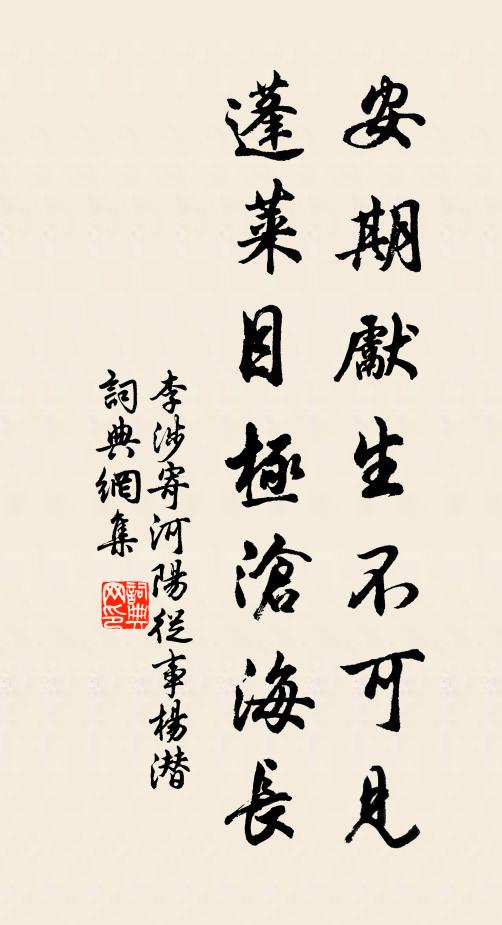 安期獻生不可見
蓬萊目極滄海長
李涉寄河陽從事楊潛
詞典網集
詞典網印